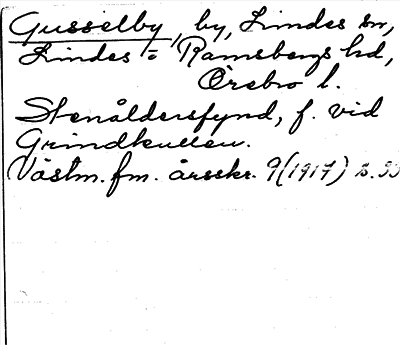 Gusselby, by, Lindes sn,
Lindes o Ramsbergs hd,
Örebro l.
Stenåldersfynd, f. vid
Grindkullen.
Västm. fm. årsskr. 9 (1917) s. 93